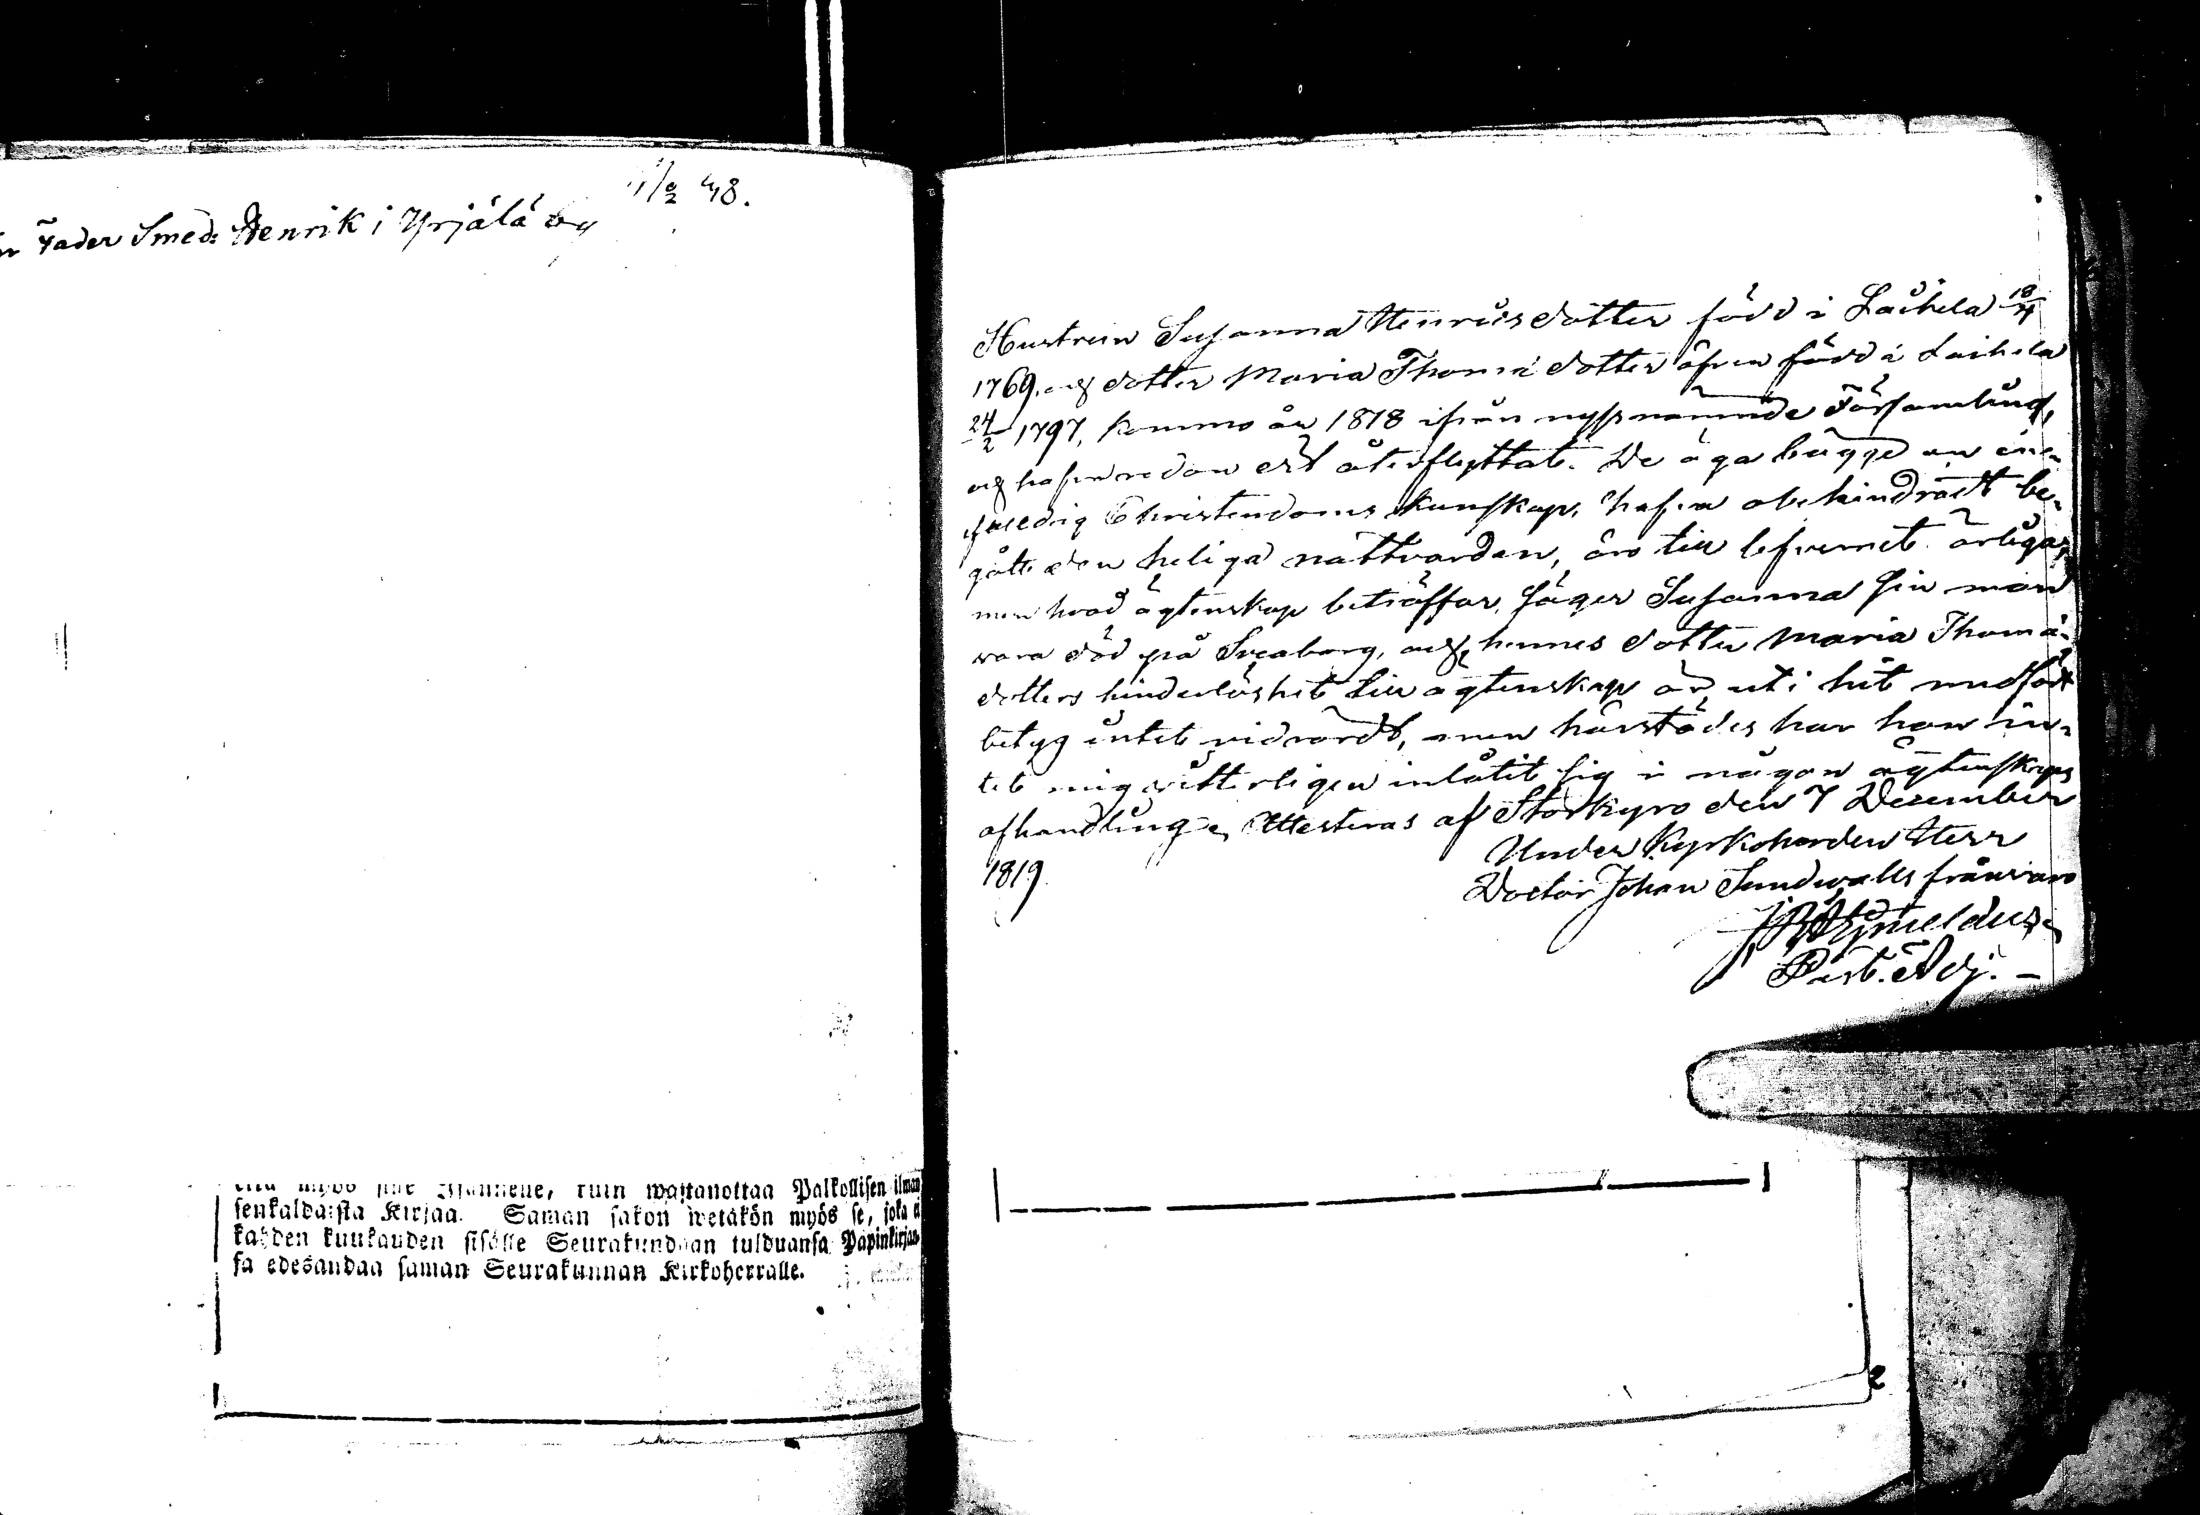 11/2 48.
Fader Smed: Henrik i Yrjälä
Palkollisen ilman
senkaldaista Kirjaa. Saman sakon wetäkön myös se, joka ei
kahden kuukauden sisälle Seurakundaan tulduansa Papinkirjaa
sa edesandaa saman Seurakunnan Kirkoherralle.
Hustrun Susanna Henricsdotter född i Laihela 18/4
1769. och dotter Maria Thomædotter äfven född i Laihela
24/2 1797, kommo år 1818 ifrån nyssnämnde Församling,
och hafva redan dit återflyttat. De äga bägge en en-
faldig Christendoms kunskap, hafva obehindradt be-
gått den heliga nattvarden, äro till lefvernet ärliga,
men hvad ägtenskap beträffar, säger Susanna sin man
vara död på Sveaborg, och hennes dotter Maria Thomæ-
dotters hinderlöshet till ägtenskap är uti hit medfördt
betyg intet vidrördt, men härstädes har hon in-
tet mig vetterligen inlåtit sig i någon ägtenskaps
afhandling, Attesteras af Storkyro den 7 December
1819. Under Kyrkoherden Herr
Doctor Johan Sundwalls frånvaro
Past. Adj. –